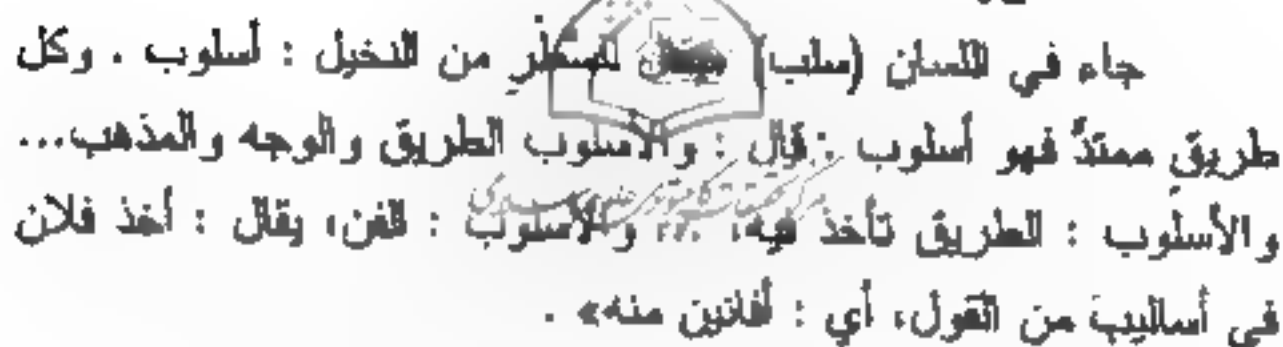 جاء في اللسان (سلب) يقال للسطرِ من النخيل : أسلوب . وكل
طريقٍ ممتدٍّ فهو أسلوب . قال : والأسلوب الطريق والوجه والمذهب...
والأسلوب : الطريق تأخذ فيه، ... والأسلوب : الفن، يقال : أخذ فلان
في أساليبَ من القول، أي : أفانين منه» .